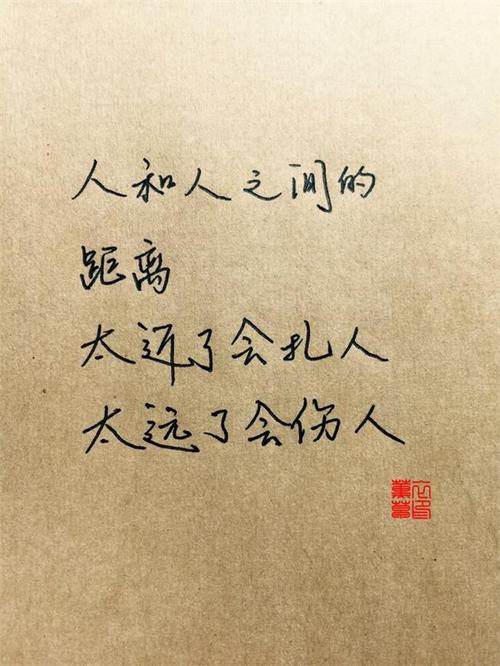 人和人之间的
距离
太近了会扎人
太远了会伤人